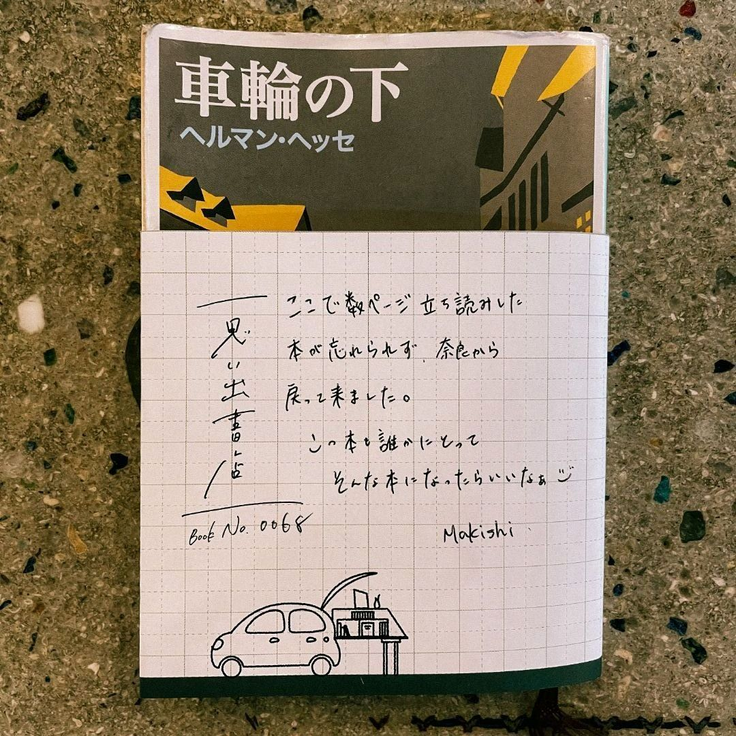 車輪の下
ヘルマン・ヘッセ
思い出書店
ここで数ページ立ち読みした
本が忘れられず、奈良から
戻って来ました。
この本も誰かにとって
そんな本になったらいいなぁ
Book No. 0068
Makishi